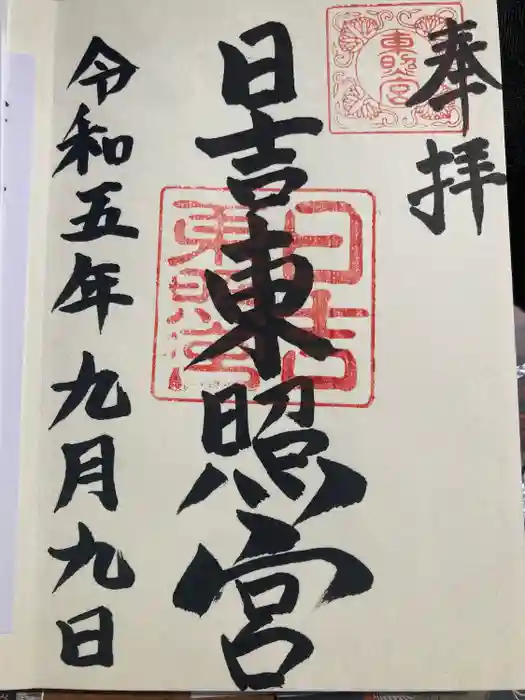 奉拝
東照宮
日吉東照宮
日吉東照宮
令和五年九月九日